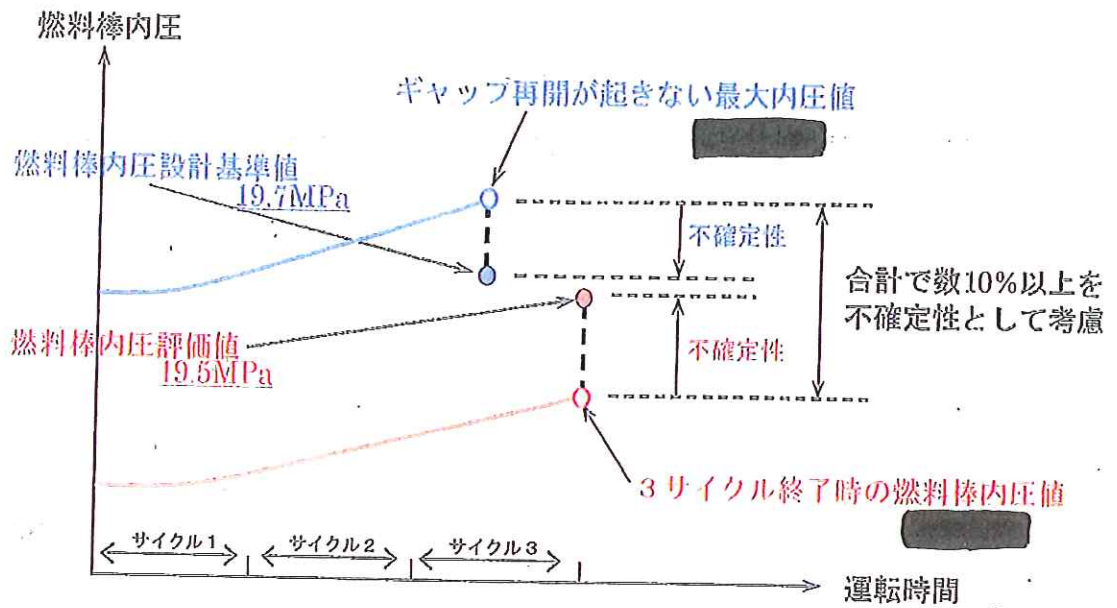 燃料棒内圧
ギャップ再開が起きない最大内圧値
燃料棒内圧設計基準値
19.7MPa
不確定性
合計で数10%以上を
不確定性として考慮
燃料棒内圧評価値
19.5MPa
不確定性
3サイクル終了時の燃料棒内圧値
サイクル1
サイクル2
サイクル3
運転時間